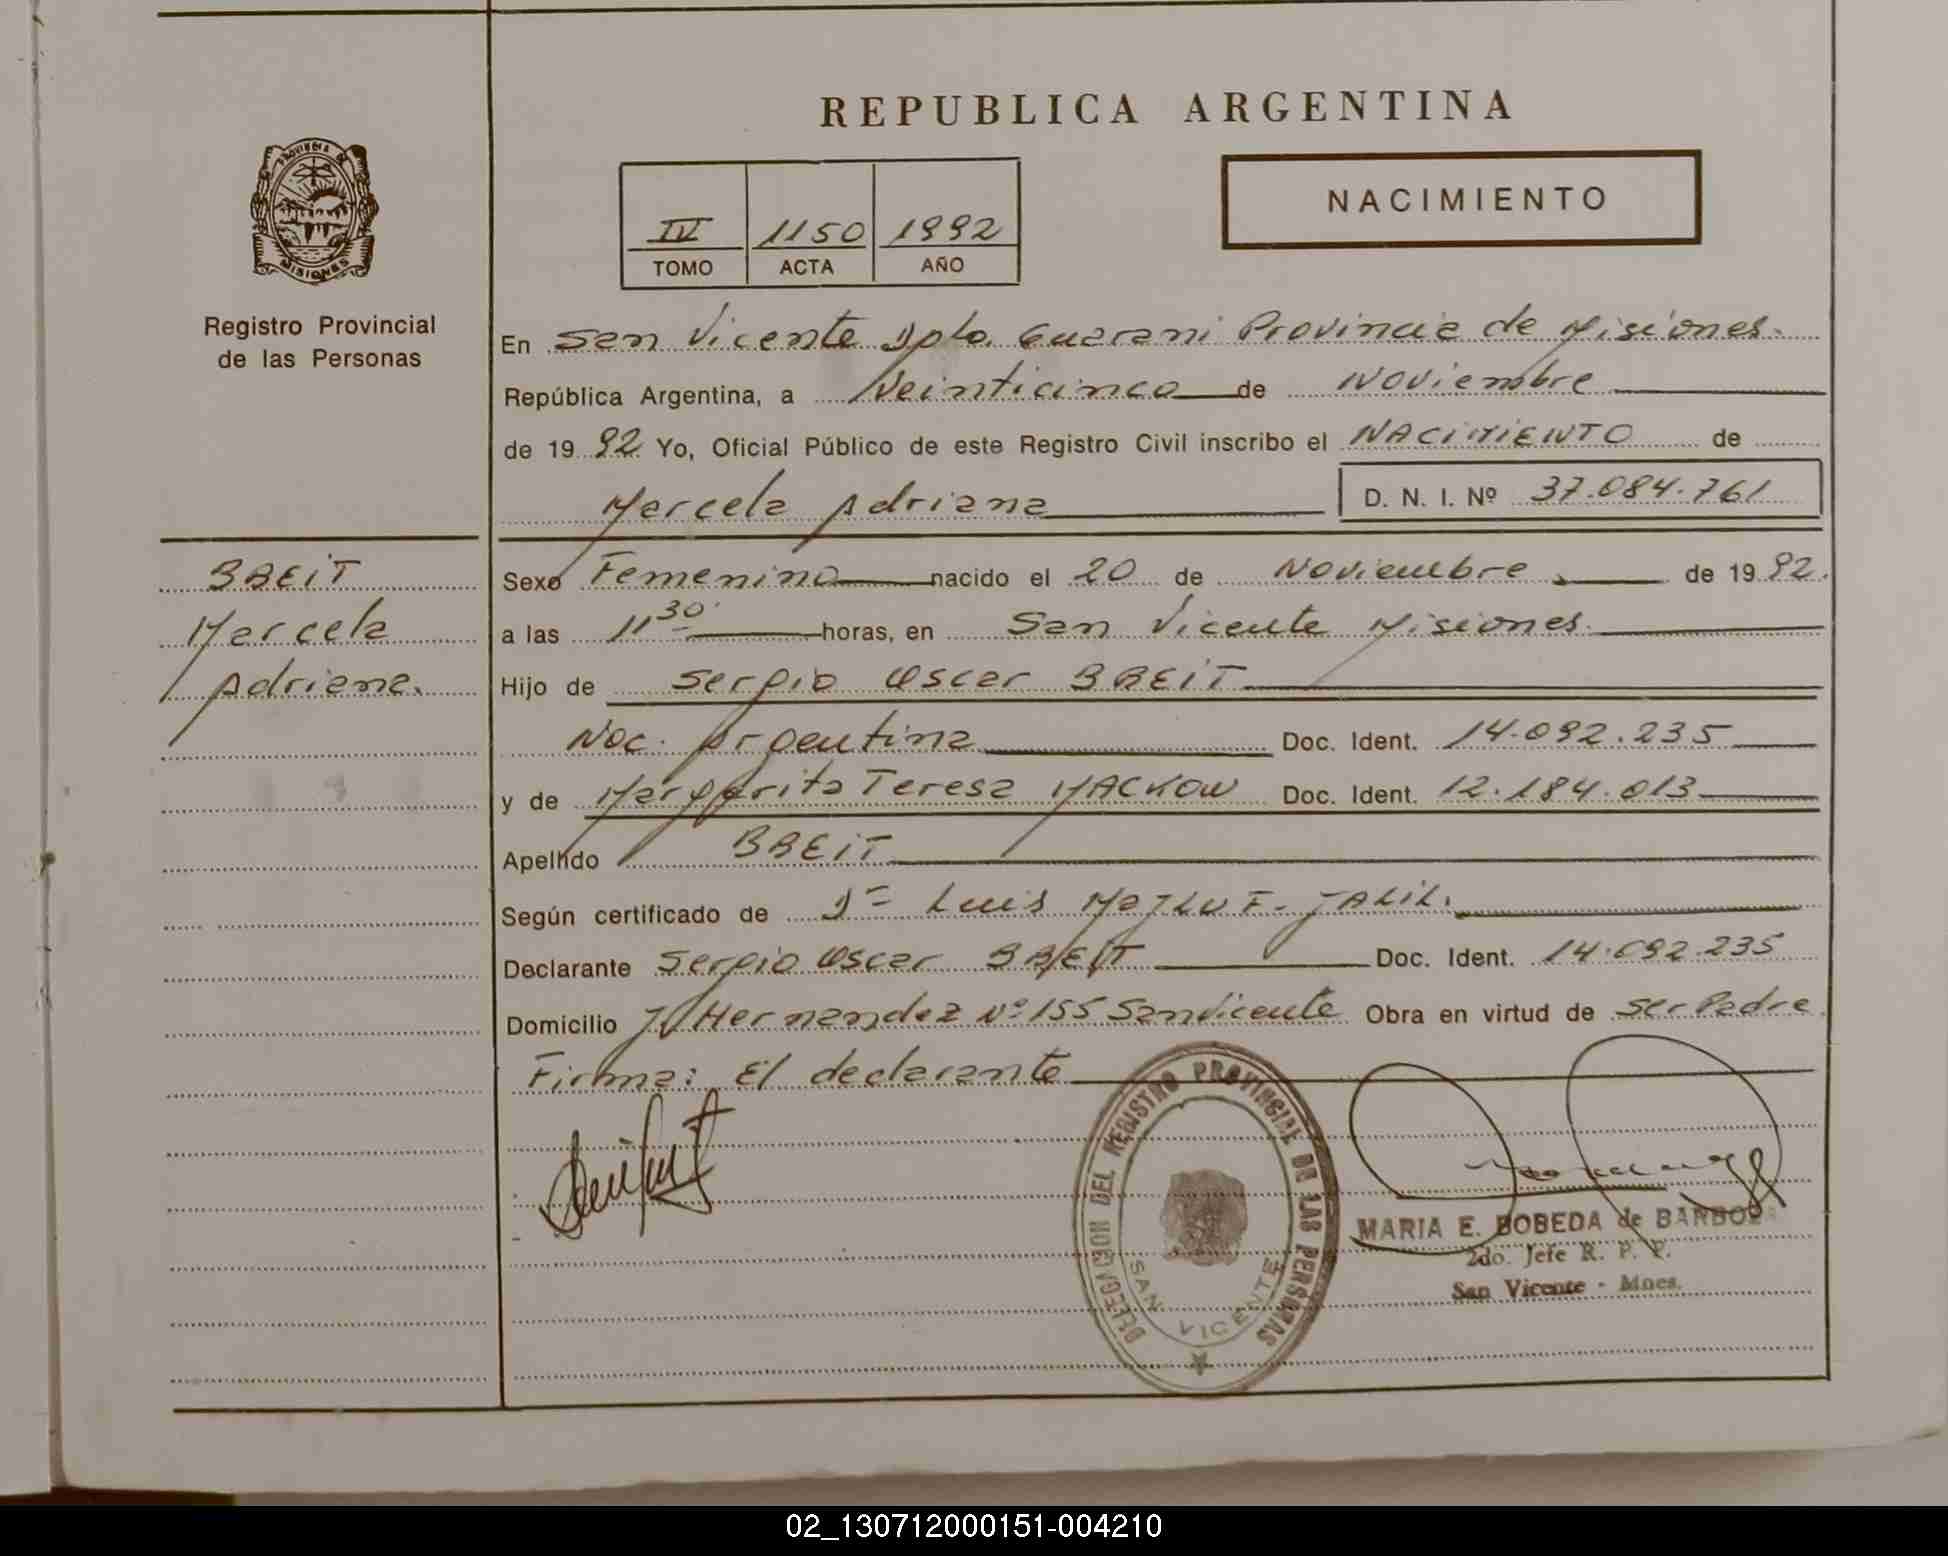 REPUBLICA ARGENTINA
PROVINCIA DE MISIONES
Registro Provincial
de las Personas
IV 1150 1992
TOMO ACTA AÑO
NACIMIENTO
En San Vicente Dpto. Guarani Provincia de Misiones.
República Argentina, a Veinticinco de Noviembre
de 1992 Yo, Oficial Público de este Registro Civil inscribo el NACIMIENTO de
Marcela Adriana D. N. I. Nº 37.084.761
BBEIT
Marcela
Adriana.
Sexo Femenino nacido el 20 de Noviembre de 1992.
a las 11 30 horas, en San Vicente Misiones.
Hijo de Sergio Oscar BBEIT
Nac. Argentina Doc. Ident. 14.092.235
y de Margarita Teresa MACKOW Doc. Ident. 12.184.013
Apellido BBEIT
Según certificado de Dr Luis JALIL.
Declarante Sergio Oscar BBEIT Doc. Ident. 14.092.235
Domicilio J. Hernandez Nº 155 San Vicente Obra en virtud de ser Padre
Firma: El declarante
DELEGACION DEL REGISTRO PROVINCIAL DE LAS PERSONAS
SAN VICENTE
MARIA E. BOBEDA de BARBOZA
2do. Jefe R. P. P.
San Vicente - Mnes.
02_130712000151-004210